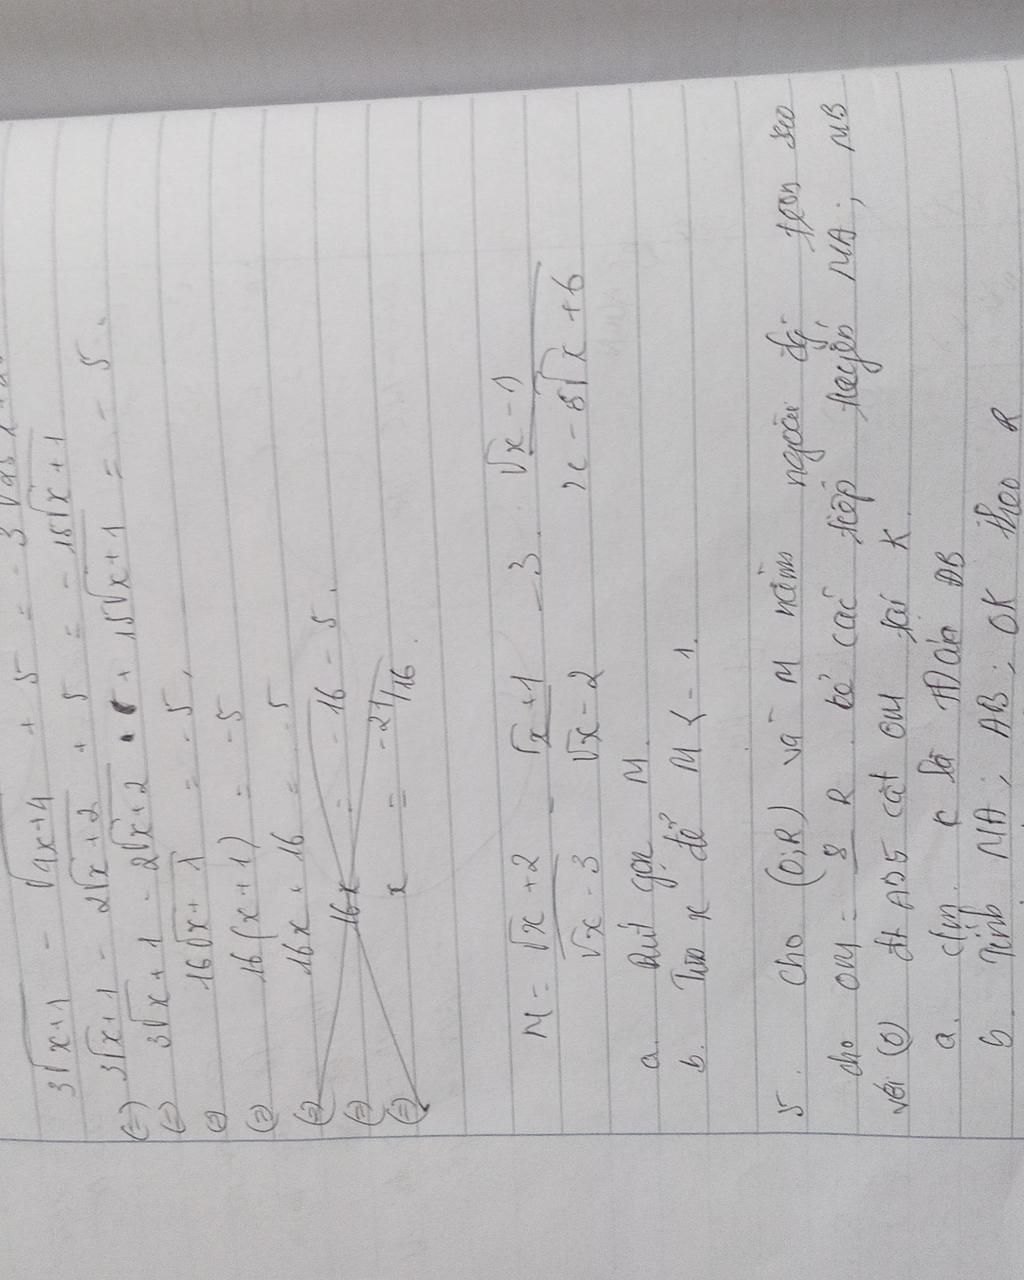 3√x+1 - √4x+4 + 5 = - 3
(=) 3√x+1 - 2√x+2 + 5 = - 15√x+1
(=) 3√x+1 - 2√x+2 + 15√x+1 = - 5.
(=) 16√x+1 = - 5.
(=) 16(x+1) = - 5
(=) 16x + 16 = - 5
(=) 16x = - 16 - 5.
(=) x = -21/16.
M = √x+2/√x-3 - √x+1/√x-2 - 3. √x-1/x-5√x+6
a. Rút gọn M.
b. Tìm x để M < - 1.
5. cho (O;R) và M nằm ngoài đg tròn sao
cho OM = 8 R. kẻ các tiếp tuyến MA; MB
với (O) cắt OM tại K.
a. c/m. K là AB
b. Tính MA; AB; OK theo R